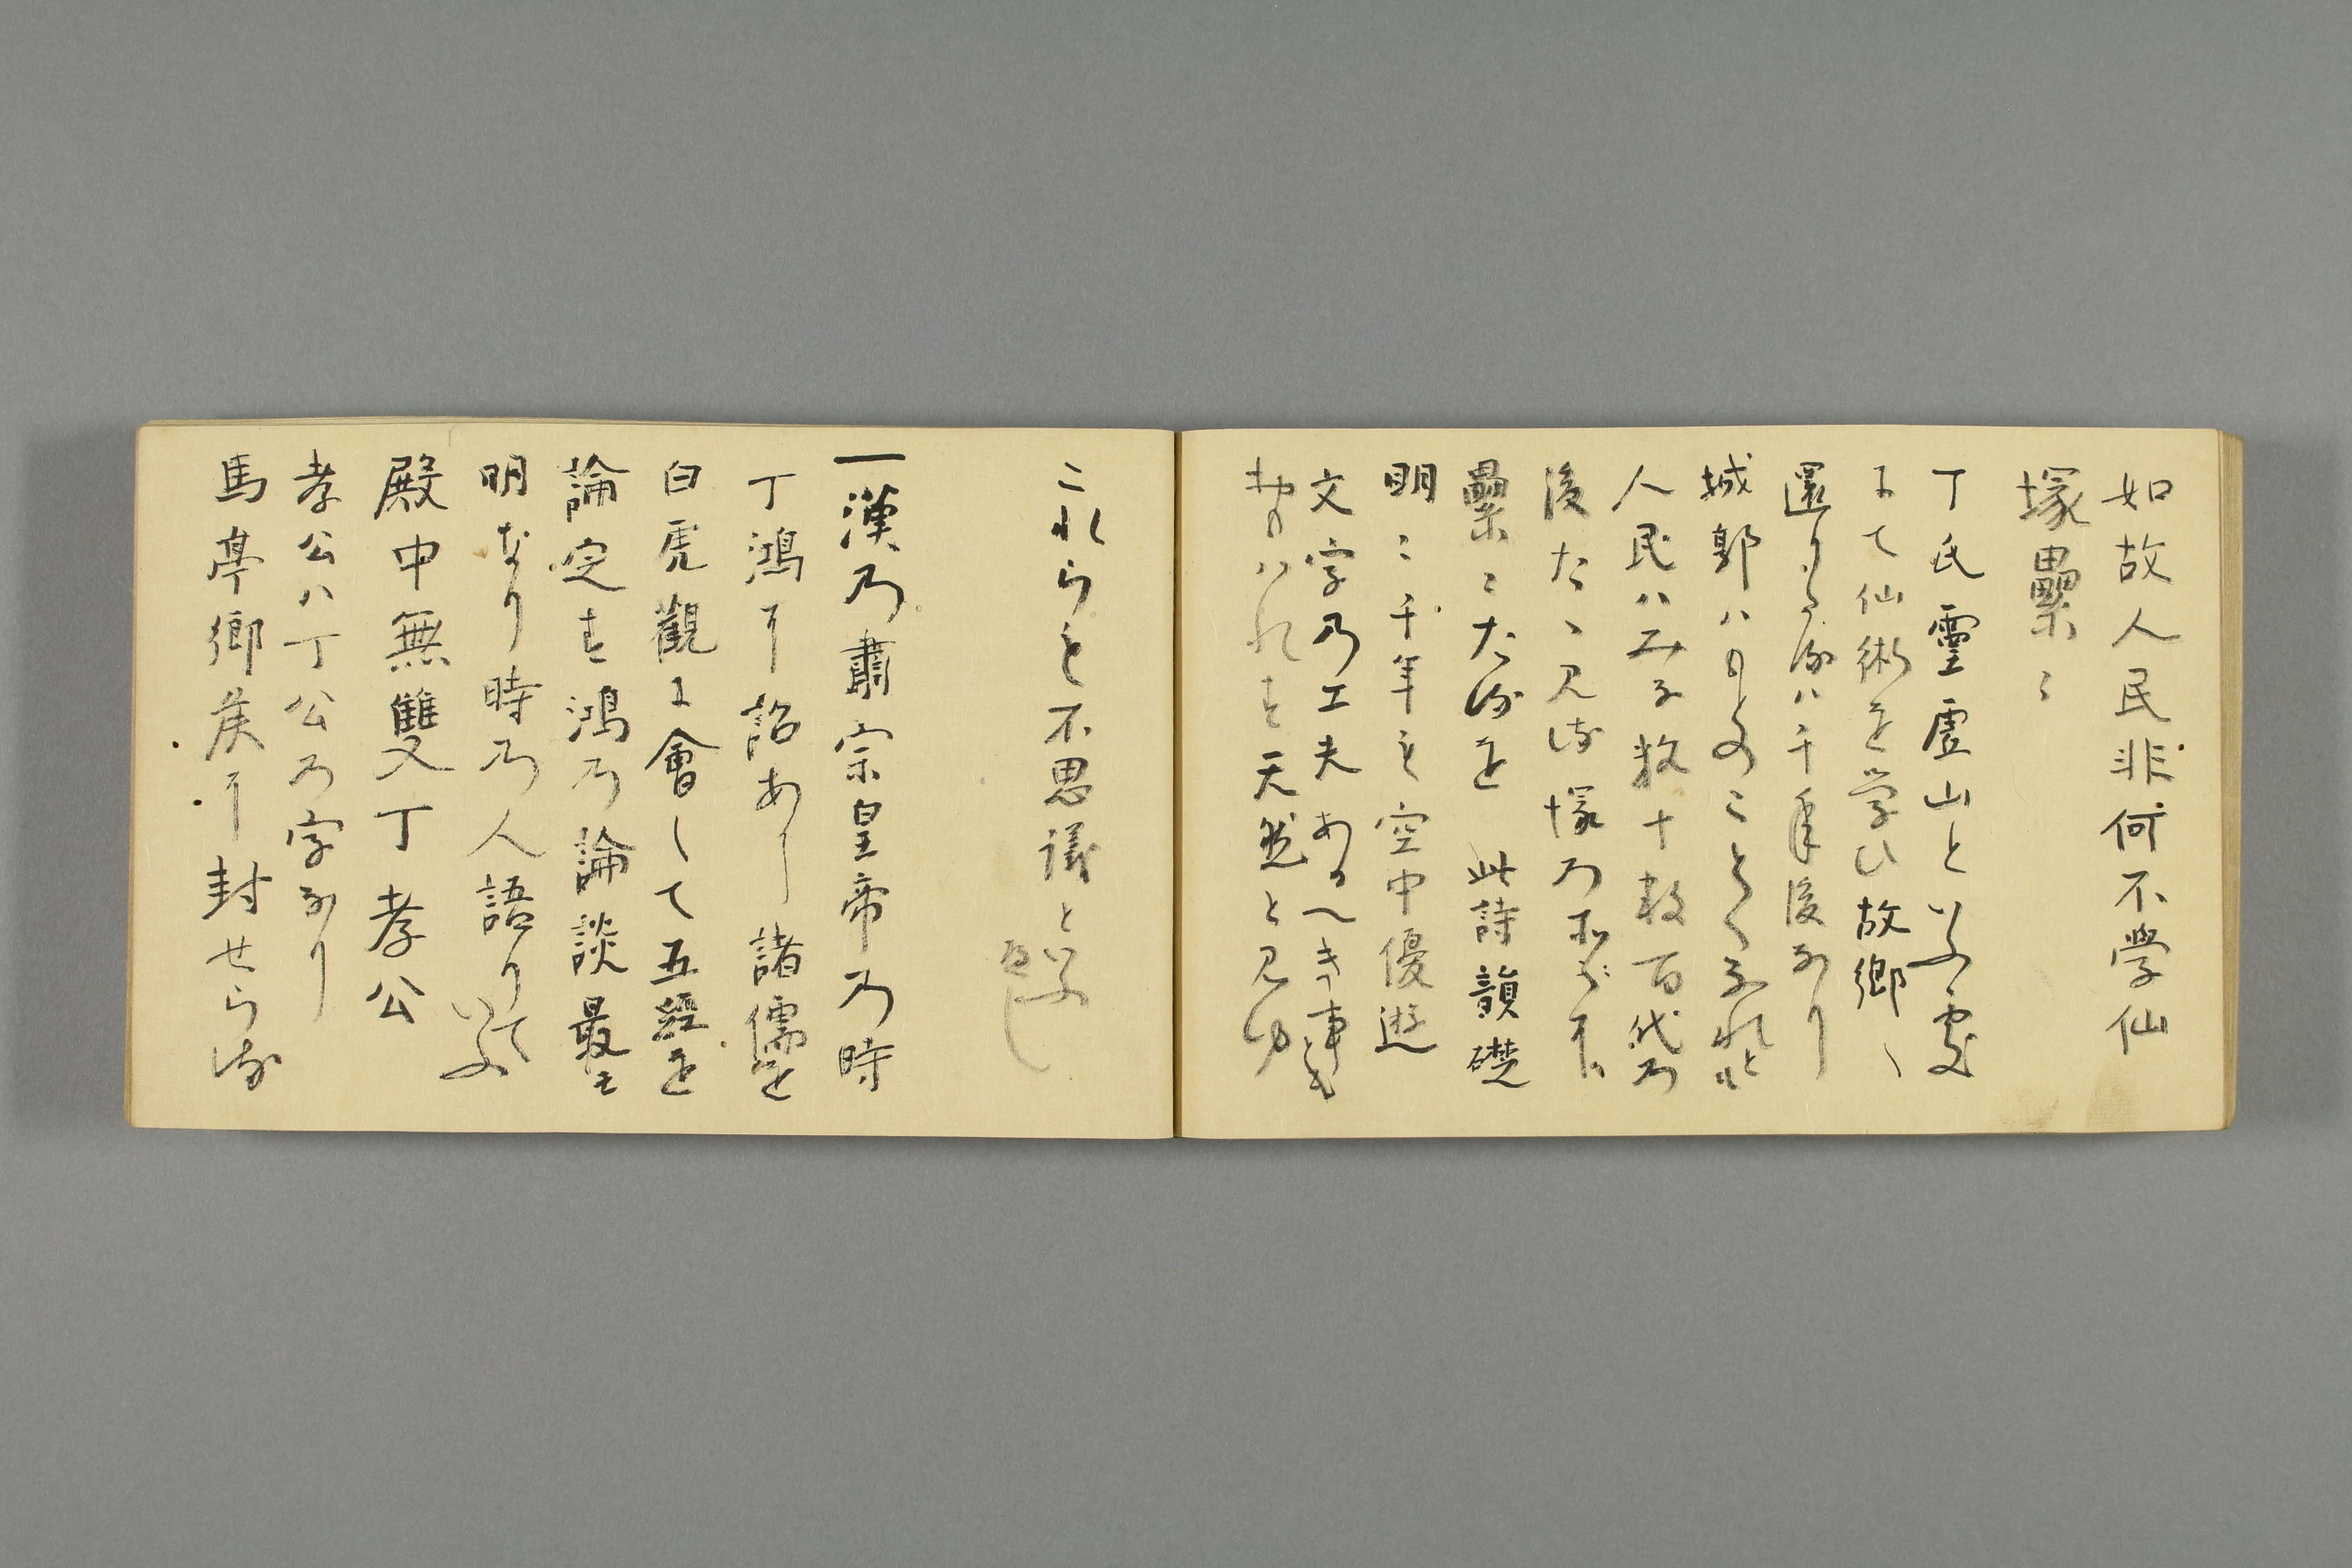 如故人民非何不學仙
塚纍〻
丁氏靈虚山といふ處
にて仙術を学ひ故郷へ
還りしは千年後なり
城郭ハもとのことくなれと
人民ハみな数十数百代の
後たゝ見る塚の
纍〻たるを 此詩韻礎
明〻千年も空中優遊
文字の工夫あるへき事とも
おもハれす天然と見ゆ
これらも不思議といふ
へし
一漢乃肅宗皇帝乃時
丁鴻に詔あり諸儒を
白虎觀に會して五經を
論定す鴻乃論談最も
明なり時乃人語りていふ
殿中無雙丁孝公
孝公ハ丁公乃字なり
馬亭郷侯に封せらる